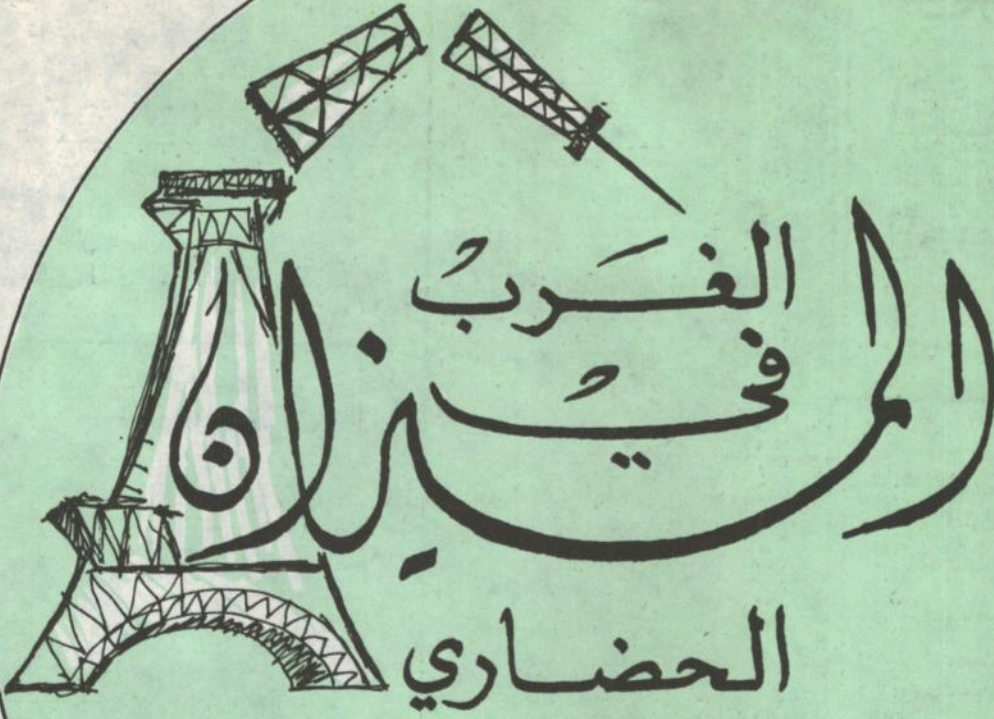 الغَربُ
في
الميزان
الحضاري